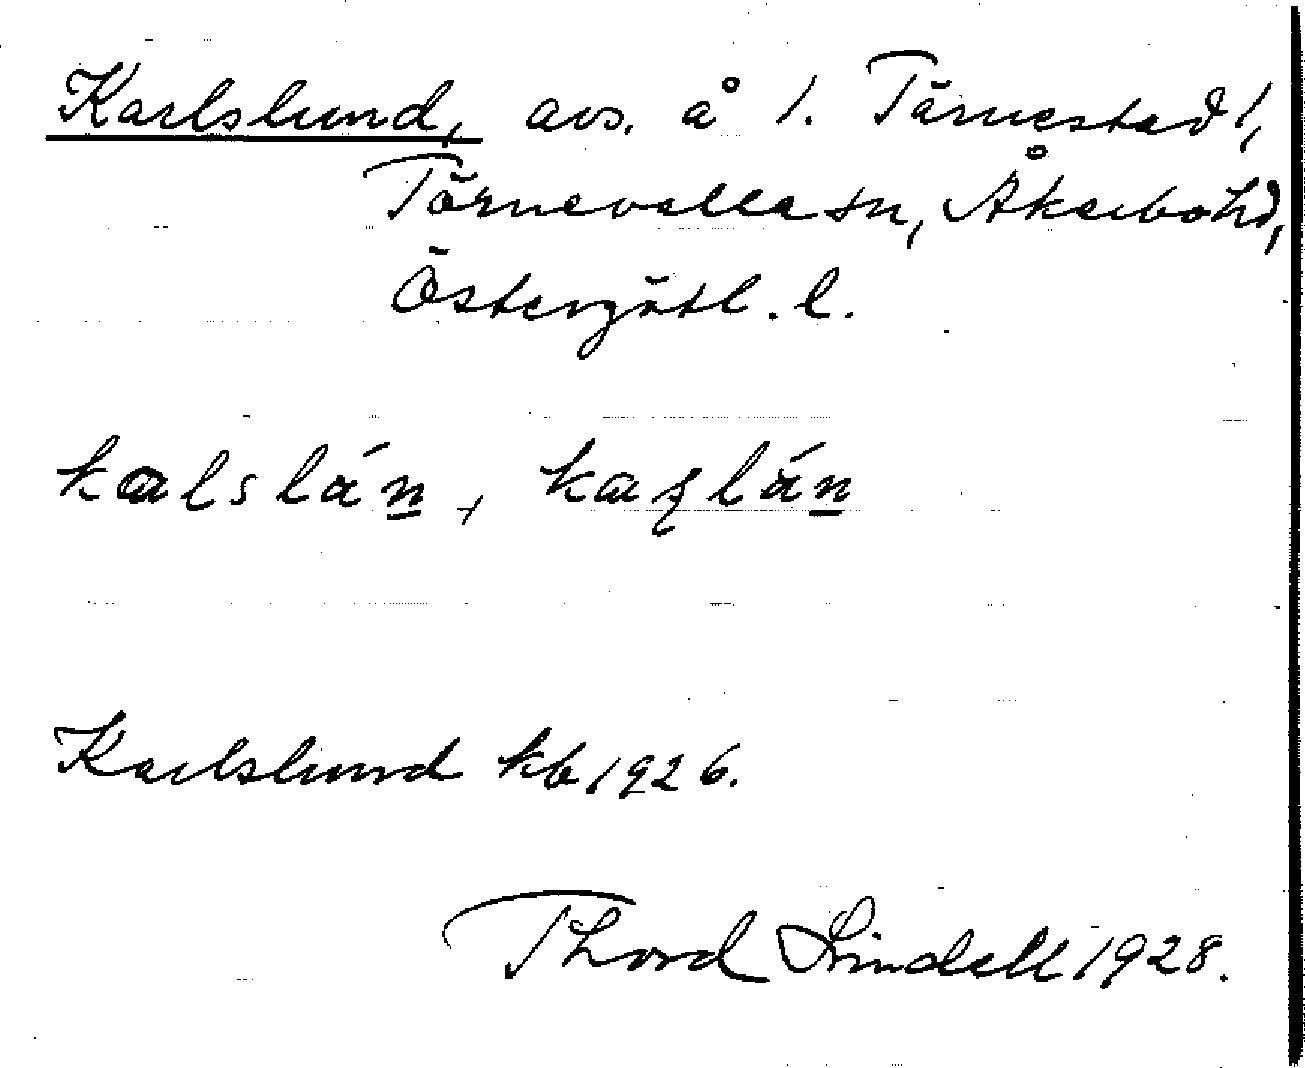 Karlslund, avs. å 1. Tärnestad 1,
Törnevalla sn, Åkerbo hd,
Östergötl. l.
kalslán, kaʂlán
Karlslund kb 1926.
Thord Lindell 1928.